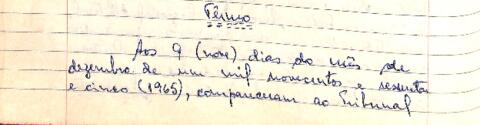 Têrmo
Aos 9 (nove) dias do mês de
dezembro de um mil novecentos e sessenta
e cinco (1965), compareceram ao Tribunal